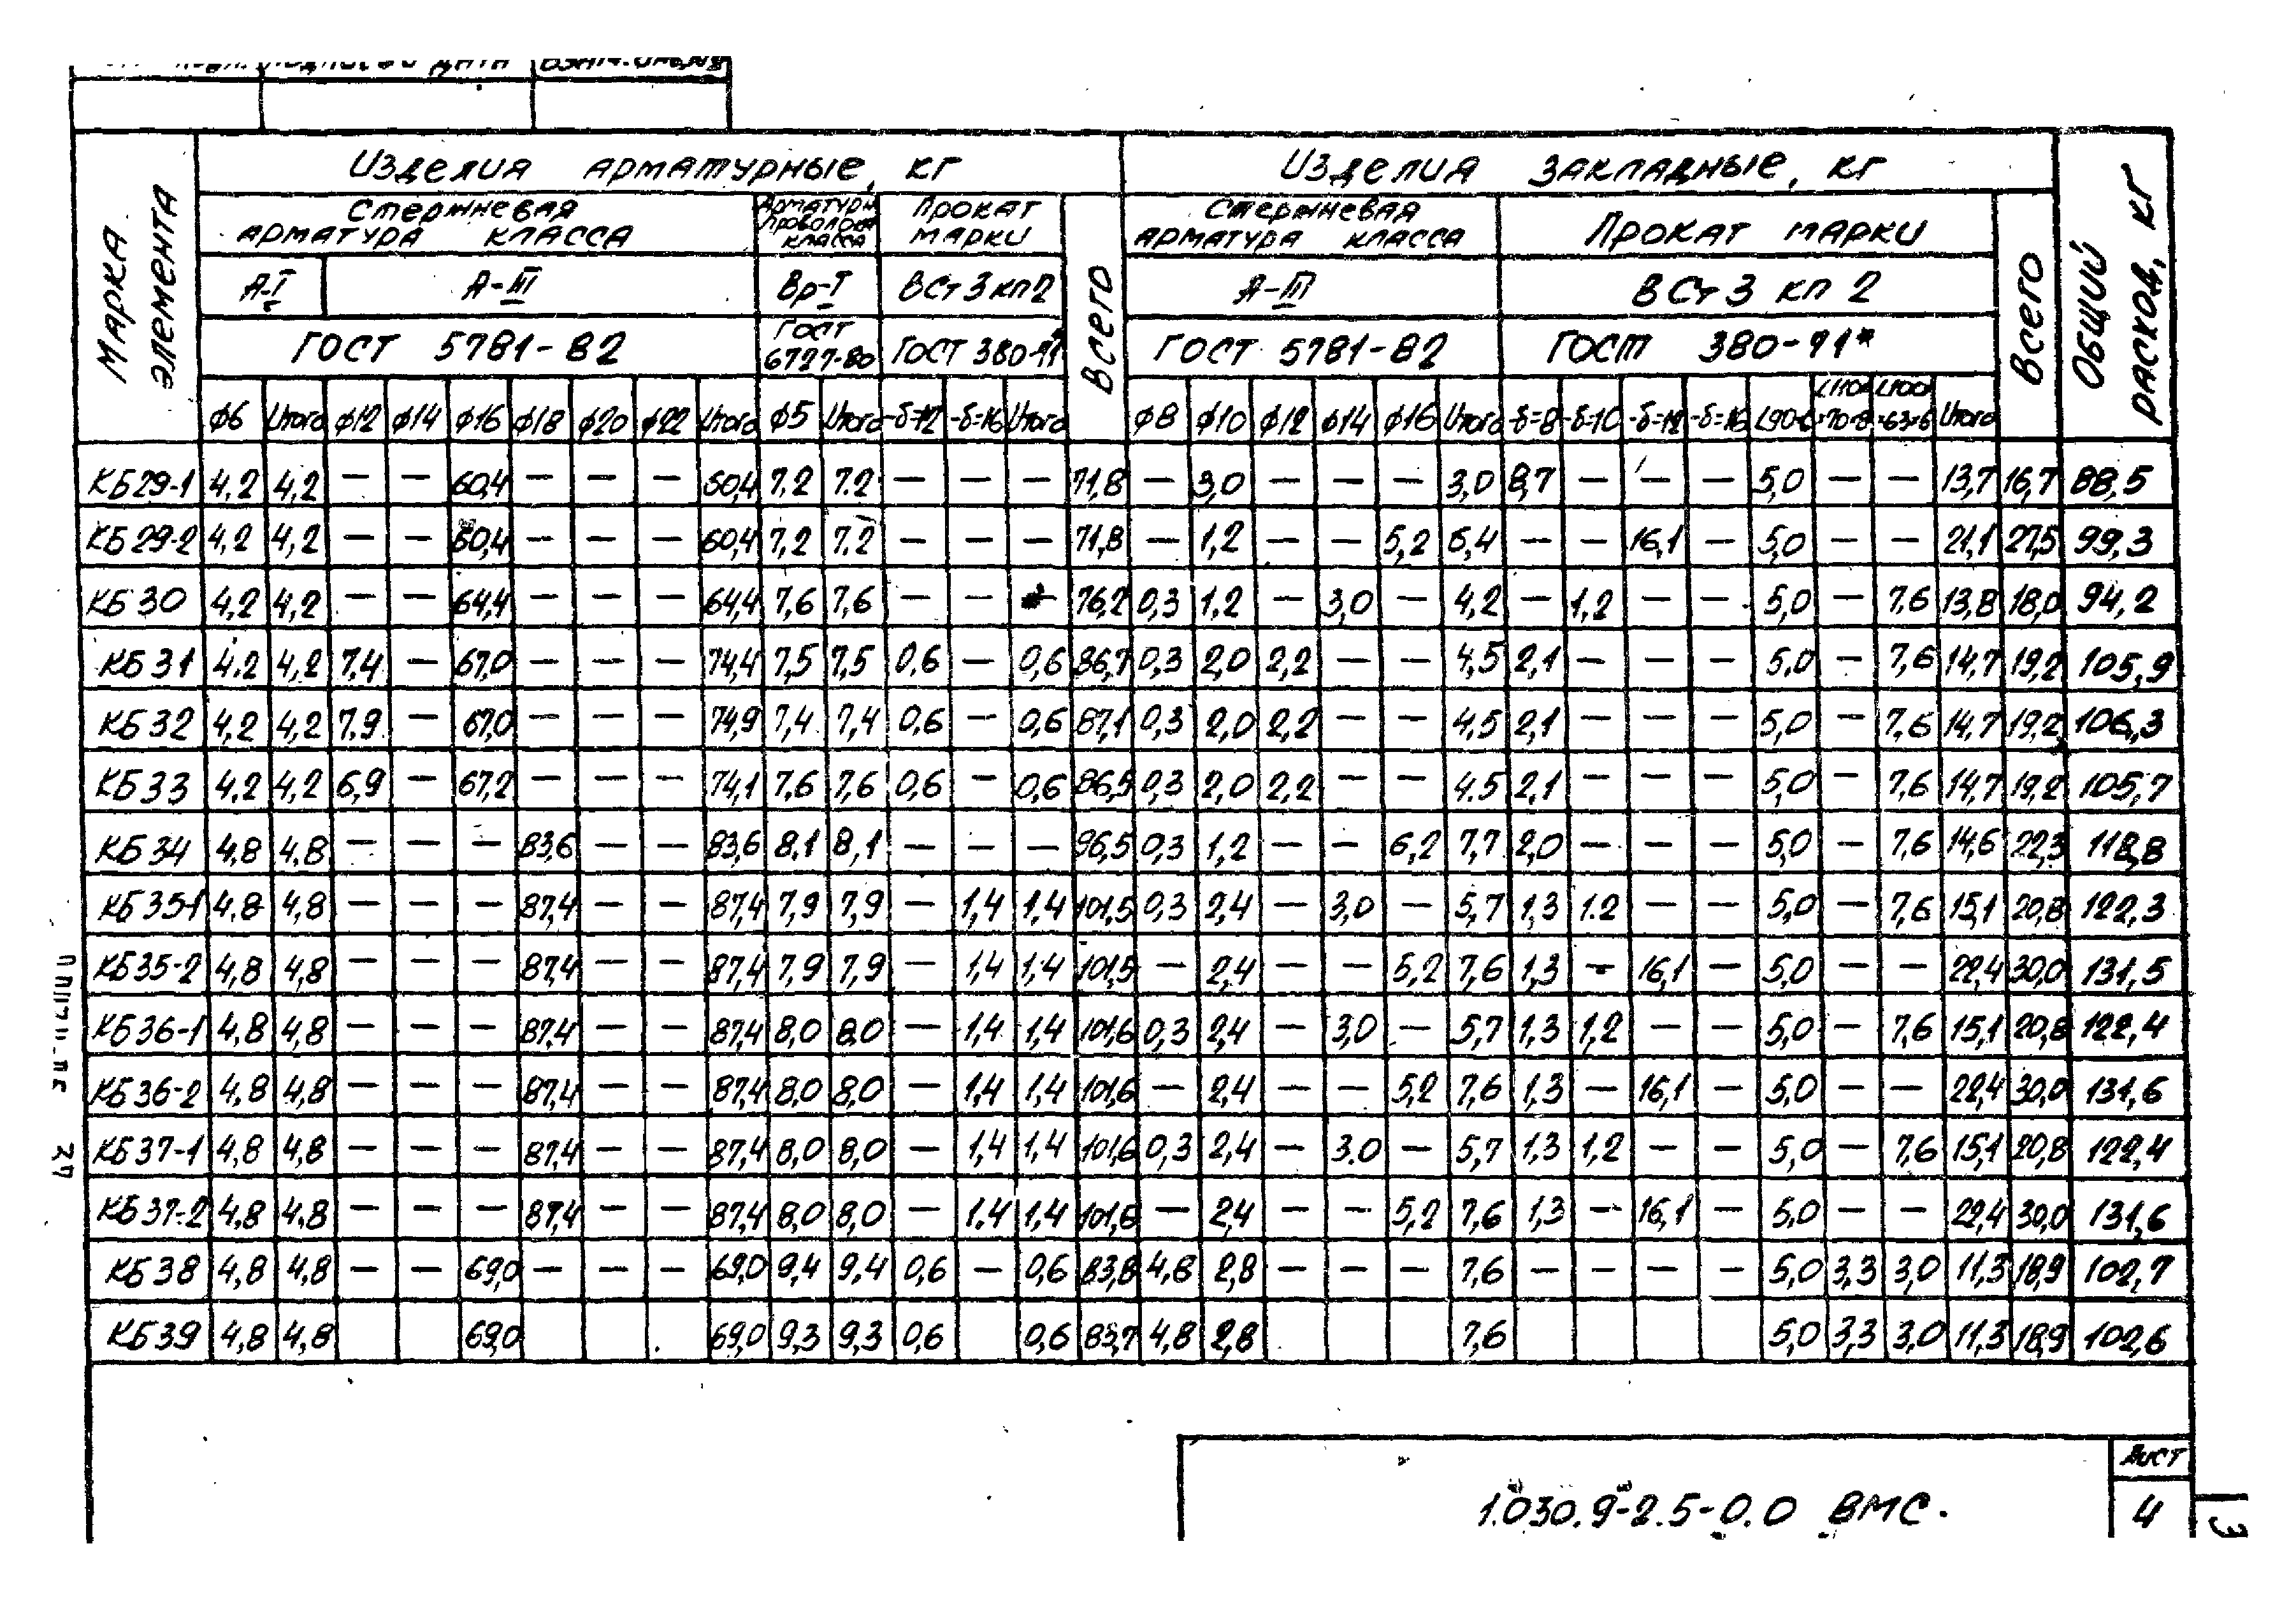 Изделия арматурные, кг
Изделия закладные, кг
Марка элемента
Стержневая арматура класса
Арматурн. проволока класса
Прокат марки
Всего
Стержневая арматура класса
Прокат марки
Всего
Общий расход, кг
А-I А-III Вр-I ВСт3кп2 А-III ВСт3 кп 2
ГОСТ 5781-82 ГОСТ 6727-80 ГОСТ 380-71* ГОСТ 5781-82 ГОСТ 380-71*
ф6 Итого ф12 ф14 ф16 ф18 ф20 ф22 Итого ф5 Итого -δ=12 -δ=16 Итого ф8 ф10 ф12 ф14 ф16 Итого -δ=8 -δ=10 -δ=12 -δ=16 L90×6 L110×70×8 L100×63×6 Итого
КБ29-1 4,2 4,2 — — 60,4 — — — 60,4 7,2 7.2 — — — 71,8 — 3,0 — — — 3,0 8,7 — — — 5,0 — — 13,7 16,7 88,5
КБ29-2 4,2 4,2 — — 60,4 — — — 60,4 7,2 7.2 — — — 71,8 — 1,2 — — 5,2 6,4 — — 16,1 — 5,0 — — 21,1 27,5 99,3
КБ30 4,2 4,2 — — 64,4 — — — 64,4 7,6 7,6 — — — 76,2 0,3 1,2 — 3,0 — 4,2 — 1,2 — — 5,0 — 7,6 13,8 18,0 94,2
КБ31 4,2 4,2 7,4 — 67,0 — — — 74,4 7,5 7,5 0,6 — 0,6 86,7 0,3 2,0 2,2 — — 4,5 2,1 — — — 5,0 — 7,6 14,7 19,2 105,9
КБ32 4,2 4,2 7,9 — 67,0 — — — 74,9 7,4 7,4 0,6 — 0,6 87,1 0,3 2,0 2,2 — — 4,5 2,1 — — — 5,0 — 7,6 14,7 19,2 106,3
КБ33 4,2 4,2 6,9 — 67,2 — — — 74,1 7,6 7,6 0,6 — 0,6 86,5 0,3 2,0 2,2 — — 4.5 2,1 — — — 5,0 — 7,6 14,7 19,2 105,7
КБ34 4,8 4,8 — — — 83,6 — — 83,6 8,1 8,1 — — — 96,5 0,3 1,2 — — 6,2 7,7 2,0 — — — 5,0 — 7,6 14,6 22,3 118,8
КБ35-1 4,8 4,8 — — — 87,4 — — 87,4 7,9 7,9 — 1,4 1,4 101,5 0,3 2,4 — 3,0 — 5,7 1,3 1.2 — — 5,0 — 7,6 15,1 20,8 122,3
КБ35-2 4,8 4,8 — — — 87,4 — — 87,4 7,9 7,9 — 1,4 1,4 101,5 — 2,4 — — 5,2 7,6 1,3 — 16,1 — 5,0 — — 22,4 30,0 131,5
КБ36-1 4,8 4,8 — — — 87,4 — — 87,4 8,0 8,0 — 1,4 1,4 101,6 0,3 2,4 — 3,0 — 5,7 1,3 1,2 — — 5,0 — 7,6 15,1 20,8 122,4
КБ36-2 4,8 4,8 — — — 87,4 — — 87,4 8,0 8,0 — 1,4 1,4 101,6 — 2,4 — — 5,2 7,6 1,3 — 16,1 — 5,0 — — 22,4 30,0 131,6
КБ37-1 4,8 4,8 — — — 87,4 — — 87,4 8,0 8,0 — 1,4 1,4 101,6 0,3 2,4 — 3.0 — 5,7 1,3 1,2 — — 5,0 — 7,6 15,1 20,8 122,4
КБ37-2 4,8 4,8 — — — 87,4 — — 87,4 8,0 8,0 — 1.4 1,4 101,6 — 2,4 — — 5,2 7,6 1,3 — 16,1 — 5,0 — — 22,4 30,0 131,6
КБ38 4,8 4,8 — — 69,0 — — — 69,0 9,4 9,4 0,6 — 0,6 83,8 4,8 2,8 — — — 7,6 — — — — 5,0 3,3 3,0 11,3 18,9 102,7
КБ39 4,8 4,8 69,0 69,0 9,3 9,3 0,6 0,6 83,7 4,8 2,8 7,6 5,0 3,3 3,0 11,3 18,9 102,6
1.030.9-2.5-0.0 ВМС.
Лист
4